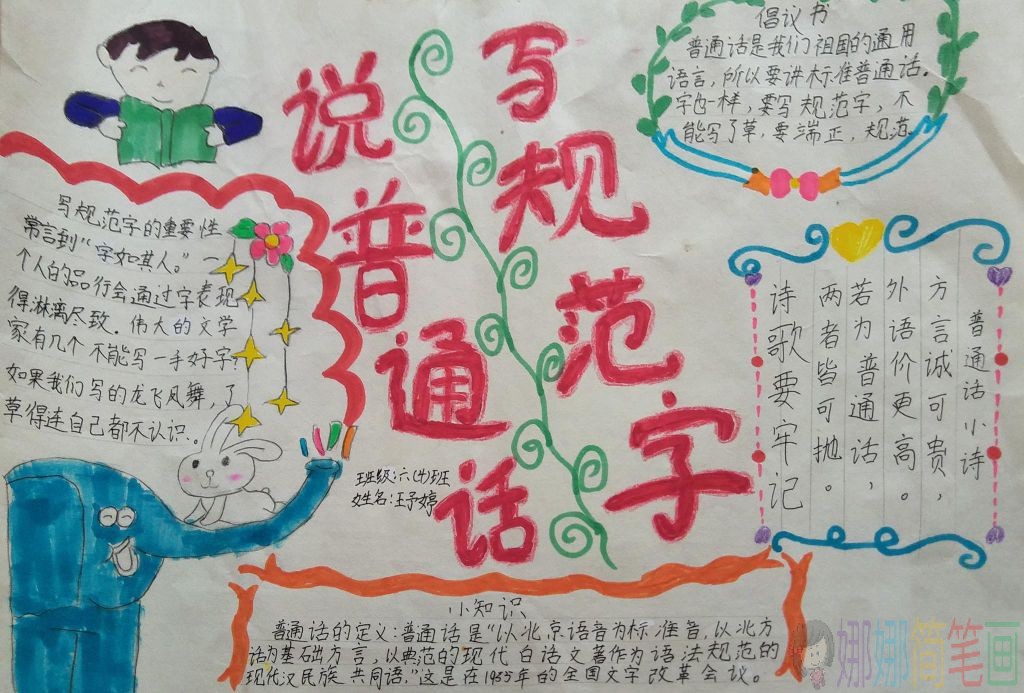 说普通话
写规范字
倡议书
普通话是我们祖国的通用
语言，所以要讲标准普通话。
字也一样，要写规范字，不
能写了草，要端正，规范
写规范字的重要性
常言到“字如其人。”一
个人的品行会通过字表现
得淋漓尽致．伟大的文学
家有几个不能写一手好字？
如果我们写的龙飞凤舞，了
草得连自己都不认识．。
班级：六(4)班
姓名：王予婷
普通话小诗
方言诚可贵，
外语价更高。
若为普通话，
两者皆可抛。
诗歌要牢记
小知识
普通话的定义：普通话是“以北京语音为标准音，以北方
话为基础方言，以典范的现代白话文著作为语法规范的
现代汉民族共同语，”这是在1955年的全国文字改革会议。
娜娜简笔画